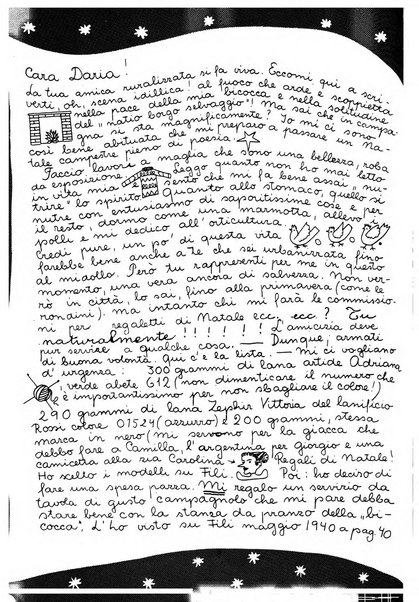 Cara Daria!
La tua amica ruralizzata si fa viva. Eccomi qui a scri-
verti, oh, scena idillica! al fuoco che arde e scoppietta
nella pace della mia bicocca e nella solitudine
del "natio borgo selvaggio"! Ma sai che in campa-
gna si sta magnificamente? Io mi ci sono
così bene abituata che mi preparo a passare un Na-
tale campestre pieno di poesia
Faccio lavori a maglia che sono una bellezza, roba
da esposizione. Leggo quanto non ho mai letto
in vita mia e sento che mi fa bene assai "nu-
trire" lo spirito. Quanto allo stomaco, quello si
nutre con entusiasmo di saporitissime cose e per
il resto, dormo come una marmotta, allevo i
polli e mi dedico all'orticultura.
Credi pure, un po' di questa vita
farebbe bene anche a te che sei urbanizzata fino
al midollo. Però tu rappresenti per me in questo
momento, una vera ancora di salvezza. Non ver-
rò in città, lo sai, fino alla primavera (come le
rondini). Ma intanto chi mi farà le commissio-
ni per regaletti di Natale ecc., ecc.? Tu
naturalmente!!!!!! L'amicizia deve
pur servire a qualche cosa. — Dunque, armati
di buona volontà. Qui c'è la lista. — Mi ci vogliono
d'urgenza: 300 grammi di lana artide Adriana
verde abete 612 (non dimenticare il numero che
è importantissimo per non sbagliare il colore!)
290 grammi di lana Zephir Vittoria del lanificio
Rossi colore 01524 (azzurro) e 200 grammi, stessa
marca in nero (mi servono per la giacca che
debbo fare a Camilla, l'argentina per Giorgio e una
camicetta alla zia Carolina → Regali di Natale!
Ho scelto i modelli su Fili. Poi: ho deciso di
fare una spesa pazza. Mi regalo un servizio da
tavola di gusto campagnolo che mi pare debba
stare bene con la stanza da pranzo della "bi-
cocca". L'ho visto su Fili maggio 1940 a pag. 40